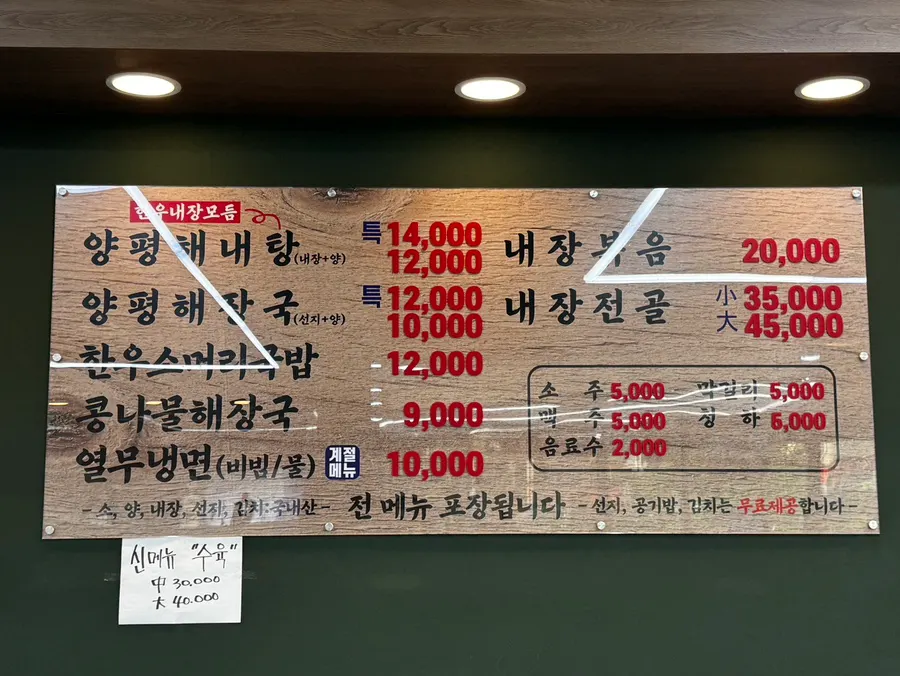 한우내장모듬
양평해내탕(내장+양) 특 14,000
12,000
양평해장국(선지+양) 특 12,000
10,000
한우소머리국밥 12,000
콩나물해장국 9,000
열무냉면(비빔/물) 계절메뉴 10,000
내장볶음 20,000
내장전골 小 35,000
大 45,000
소주 5,000 막걸리 5,000
맥주 5,000 청하 6,000
음료수 2,000
- 소, 양, 내장, 선지, 김치:국내산 - 전 메뉴 포장됩니다 - 선지, 공기밥, 김치는 무료제공합니다 -
신메뉴 "수육"
中 30.000
大 40.000